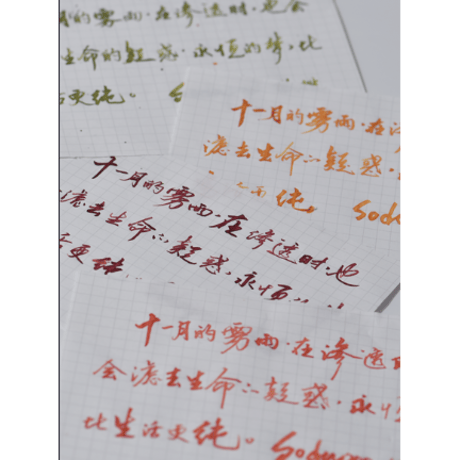 月的雾雨·在渗透时·也会
生命的疑惑·永恒的梦,比
活更纯。
十一月的雾雨·在
滤去生命的疑惑·
纯,
十一月的雾雨·在渗透时,也
滤去生命的疑惑,永恒
更纯
十一月的雾雨·在渗透
会滤去生命的疑惑·永恒
比生活更纯。